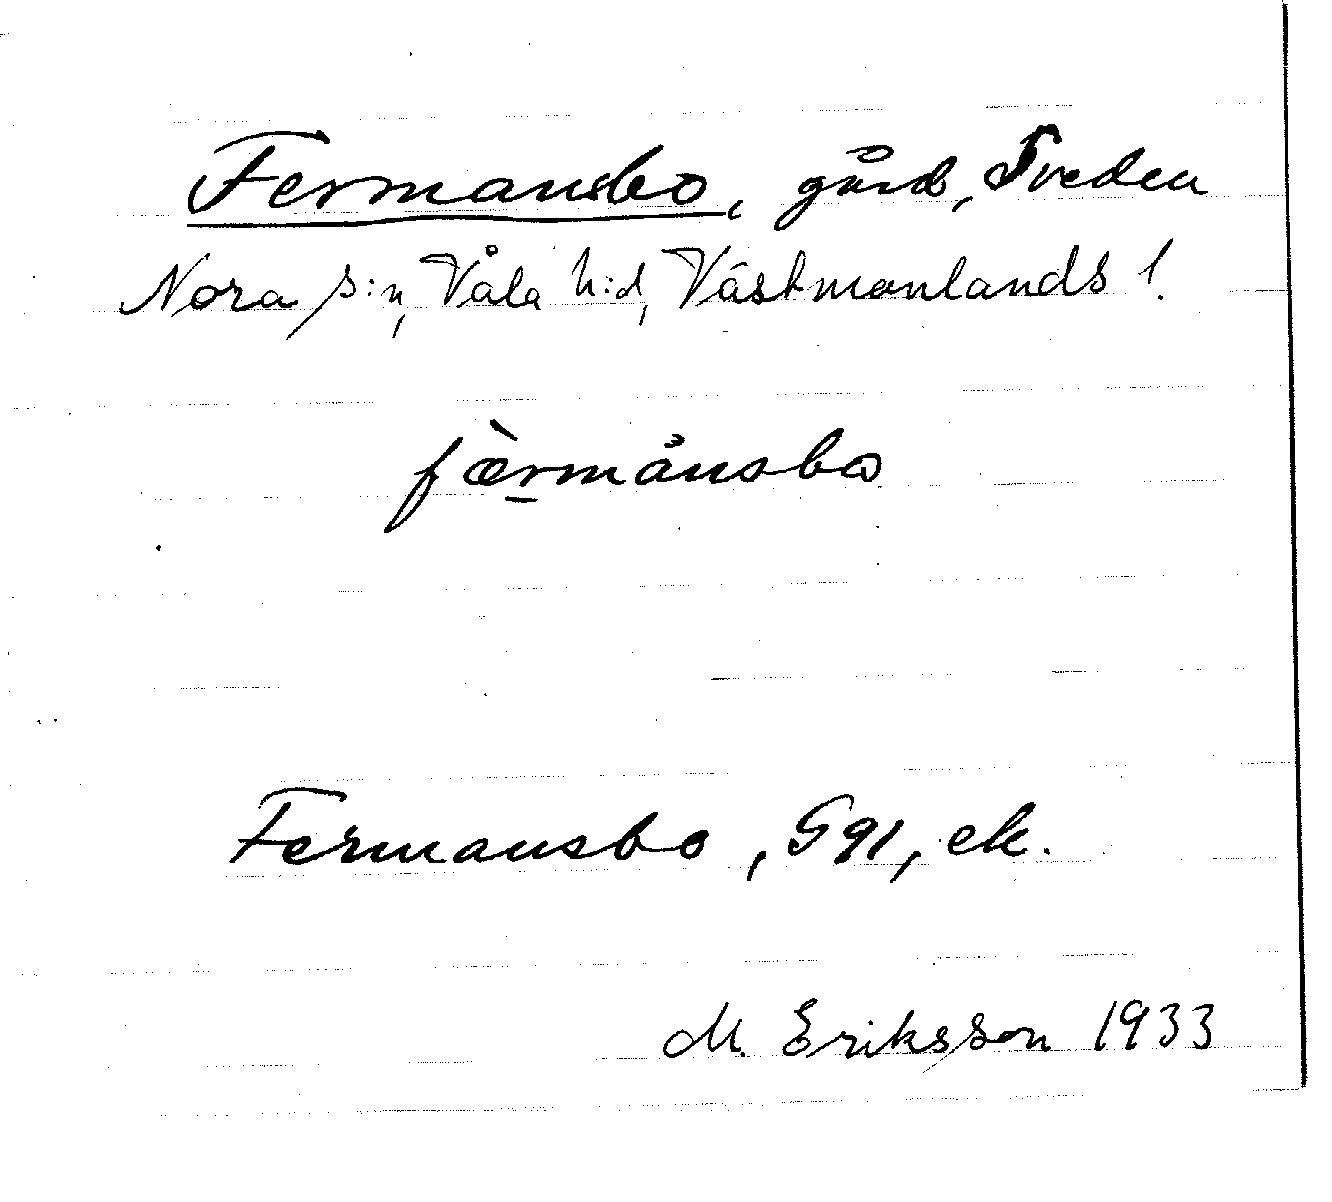 Fermansbo, gård, Sveden
Nora s:n, Våla h:d, Västmanlands l.
fæ̀rmånsbo
Fermansbo, G 91, ek.
M. Eriksson 1933